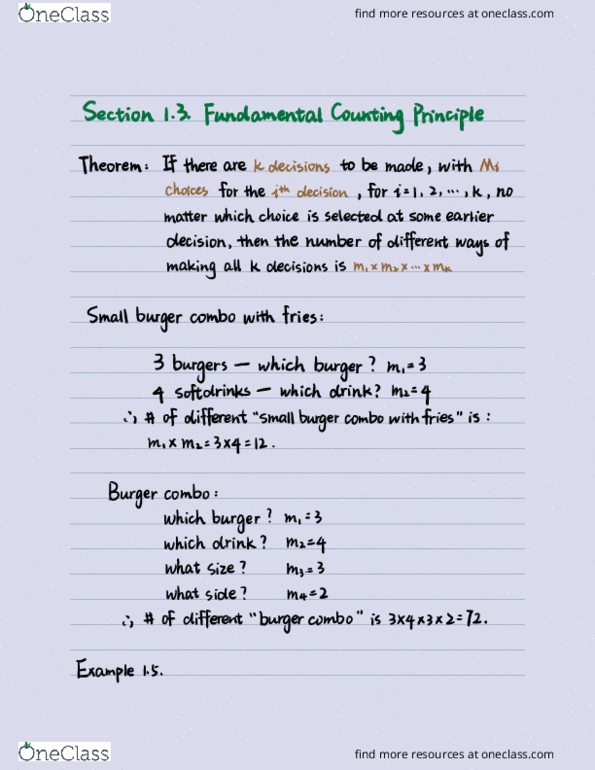 OneClass
find more resources at oneclass.com
Section 1.3. Fundamental Counting Principle
Theorem: If there are k decisions to be made, with Mi
choices for the ith decision, for i=1, 2, ..., k, no
matter which choice is selected at some earlier
decision, then the number of different ways of
making all k decisions is m₁×m₂×...×mₖ
Small burger combo with fries:
3 burgers — which burger? m₁=3
4 softdrinks — which drink? m₂=4
∴ # of different "small burger combo with fries" is:
m₁×m₂=3×4=12.
Burger combo:
which burger? m₁=3
which drink? m₂=4
what size? m₃=3
what side? m₄=2
∴ # of different "burger combo" is 3×4×3×2=72.
Example 1.5.
OneClass
find more resources at oneclass.com